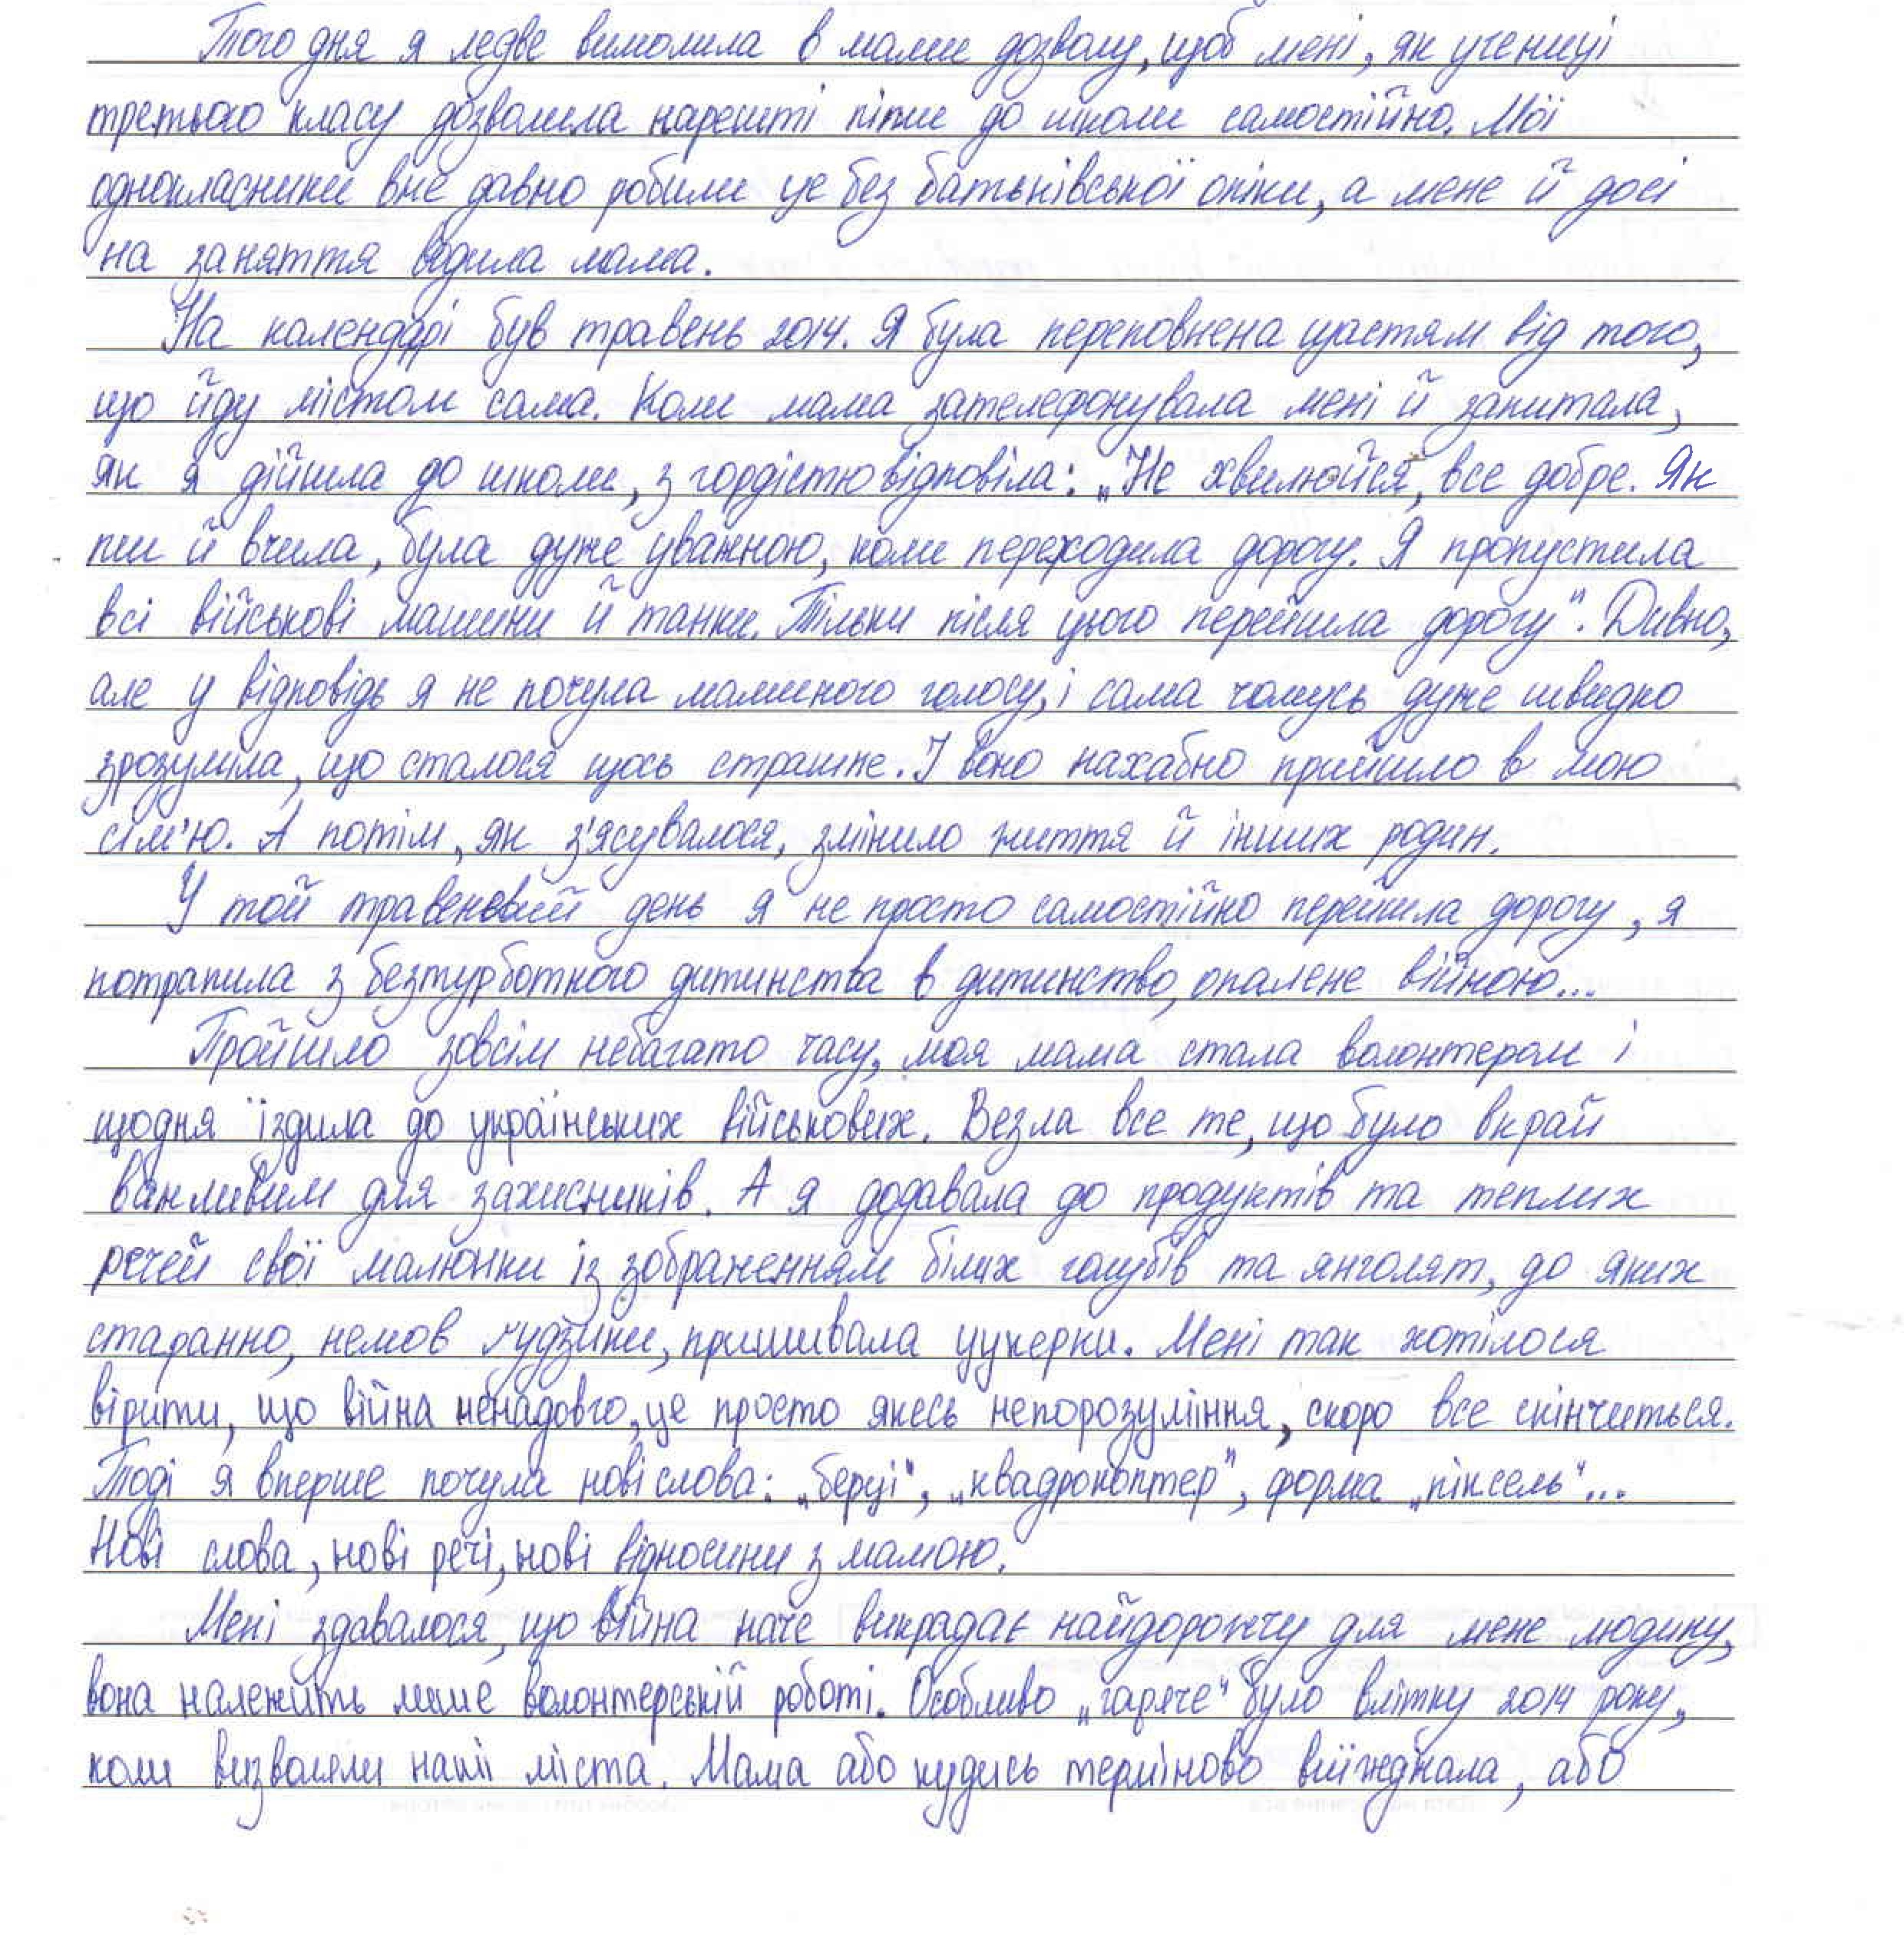 Того дня я ледве вимолила в мами дозволу, щоб мені, як учениці
третього класу дозволила нарешті піти до школи самостійно. Мої
однокласники вже давно робили це без батьківської опіки, а мене й досі
на заняття водила мама.
На календарі був травень 2014. Я була переповнена щастям від того,
що йду містом сама. Коли мама зателефонувала мені й запитала,
як я дійшла до школи, з гордістю відповіла: „Не хвилюйся, все добре. Як
ти й вчила, була дуже уважною, коли переходила дорогу. Я пропустила
всі військові машини й танки. Тільки після цього перейшла дорогу". Дивно,
але у відповідь я не почула маминого голосу, і сама чомусь дуже швидко
зрозуміла, що сталося щось страшне. І воно нахабно прийшло в мою
сім'ю. А потім, як з'ясувалося, змінило життя й інших родин.
У той травеневий день я не просто самостійно перейшла дорогу, я
потрапила з безтурботного дитинства в дитинство, опалене війною...
Пройшло зовсім небагато часу, моя мама стала волонтером і
щодня їздила до українських військових. Везла все те, що було вкрай
важливим для захисників. А я додавала до продуктів та теплих
речей свої малюнки із зображенням білих голубів та янголят, до яких
старанно, немов ґудзики, пришивала цукерки. Мені так хотілося
вірити, що війна ненадовго, це просто якесь непорозуміння, скоро все скінчиться.
Тоді я вперше почула нові слова: „берці", „квадрокоптер", форма „піксель"...
Нові слова, нові речі, нові відносини з мамою.
Мені здавалося, що війна наче викрадає найдорожчу для мене людину,
вона належить лише волонтерській роботі. Особливо „гаряче" було влітку 2014 року,
коли визволяли наші міста. Мама або кудись терміново виїжджала, або